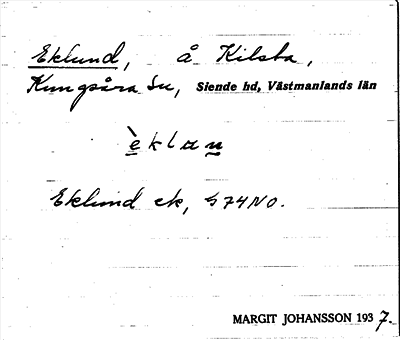 Eklund, å Kilsta,
Kungsåra sn, Siende hd, Västmanlands län
èklan
Eklund ek, S 74 NO.
MARGIT JOHANSSON 1937.